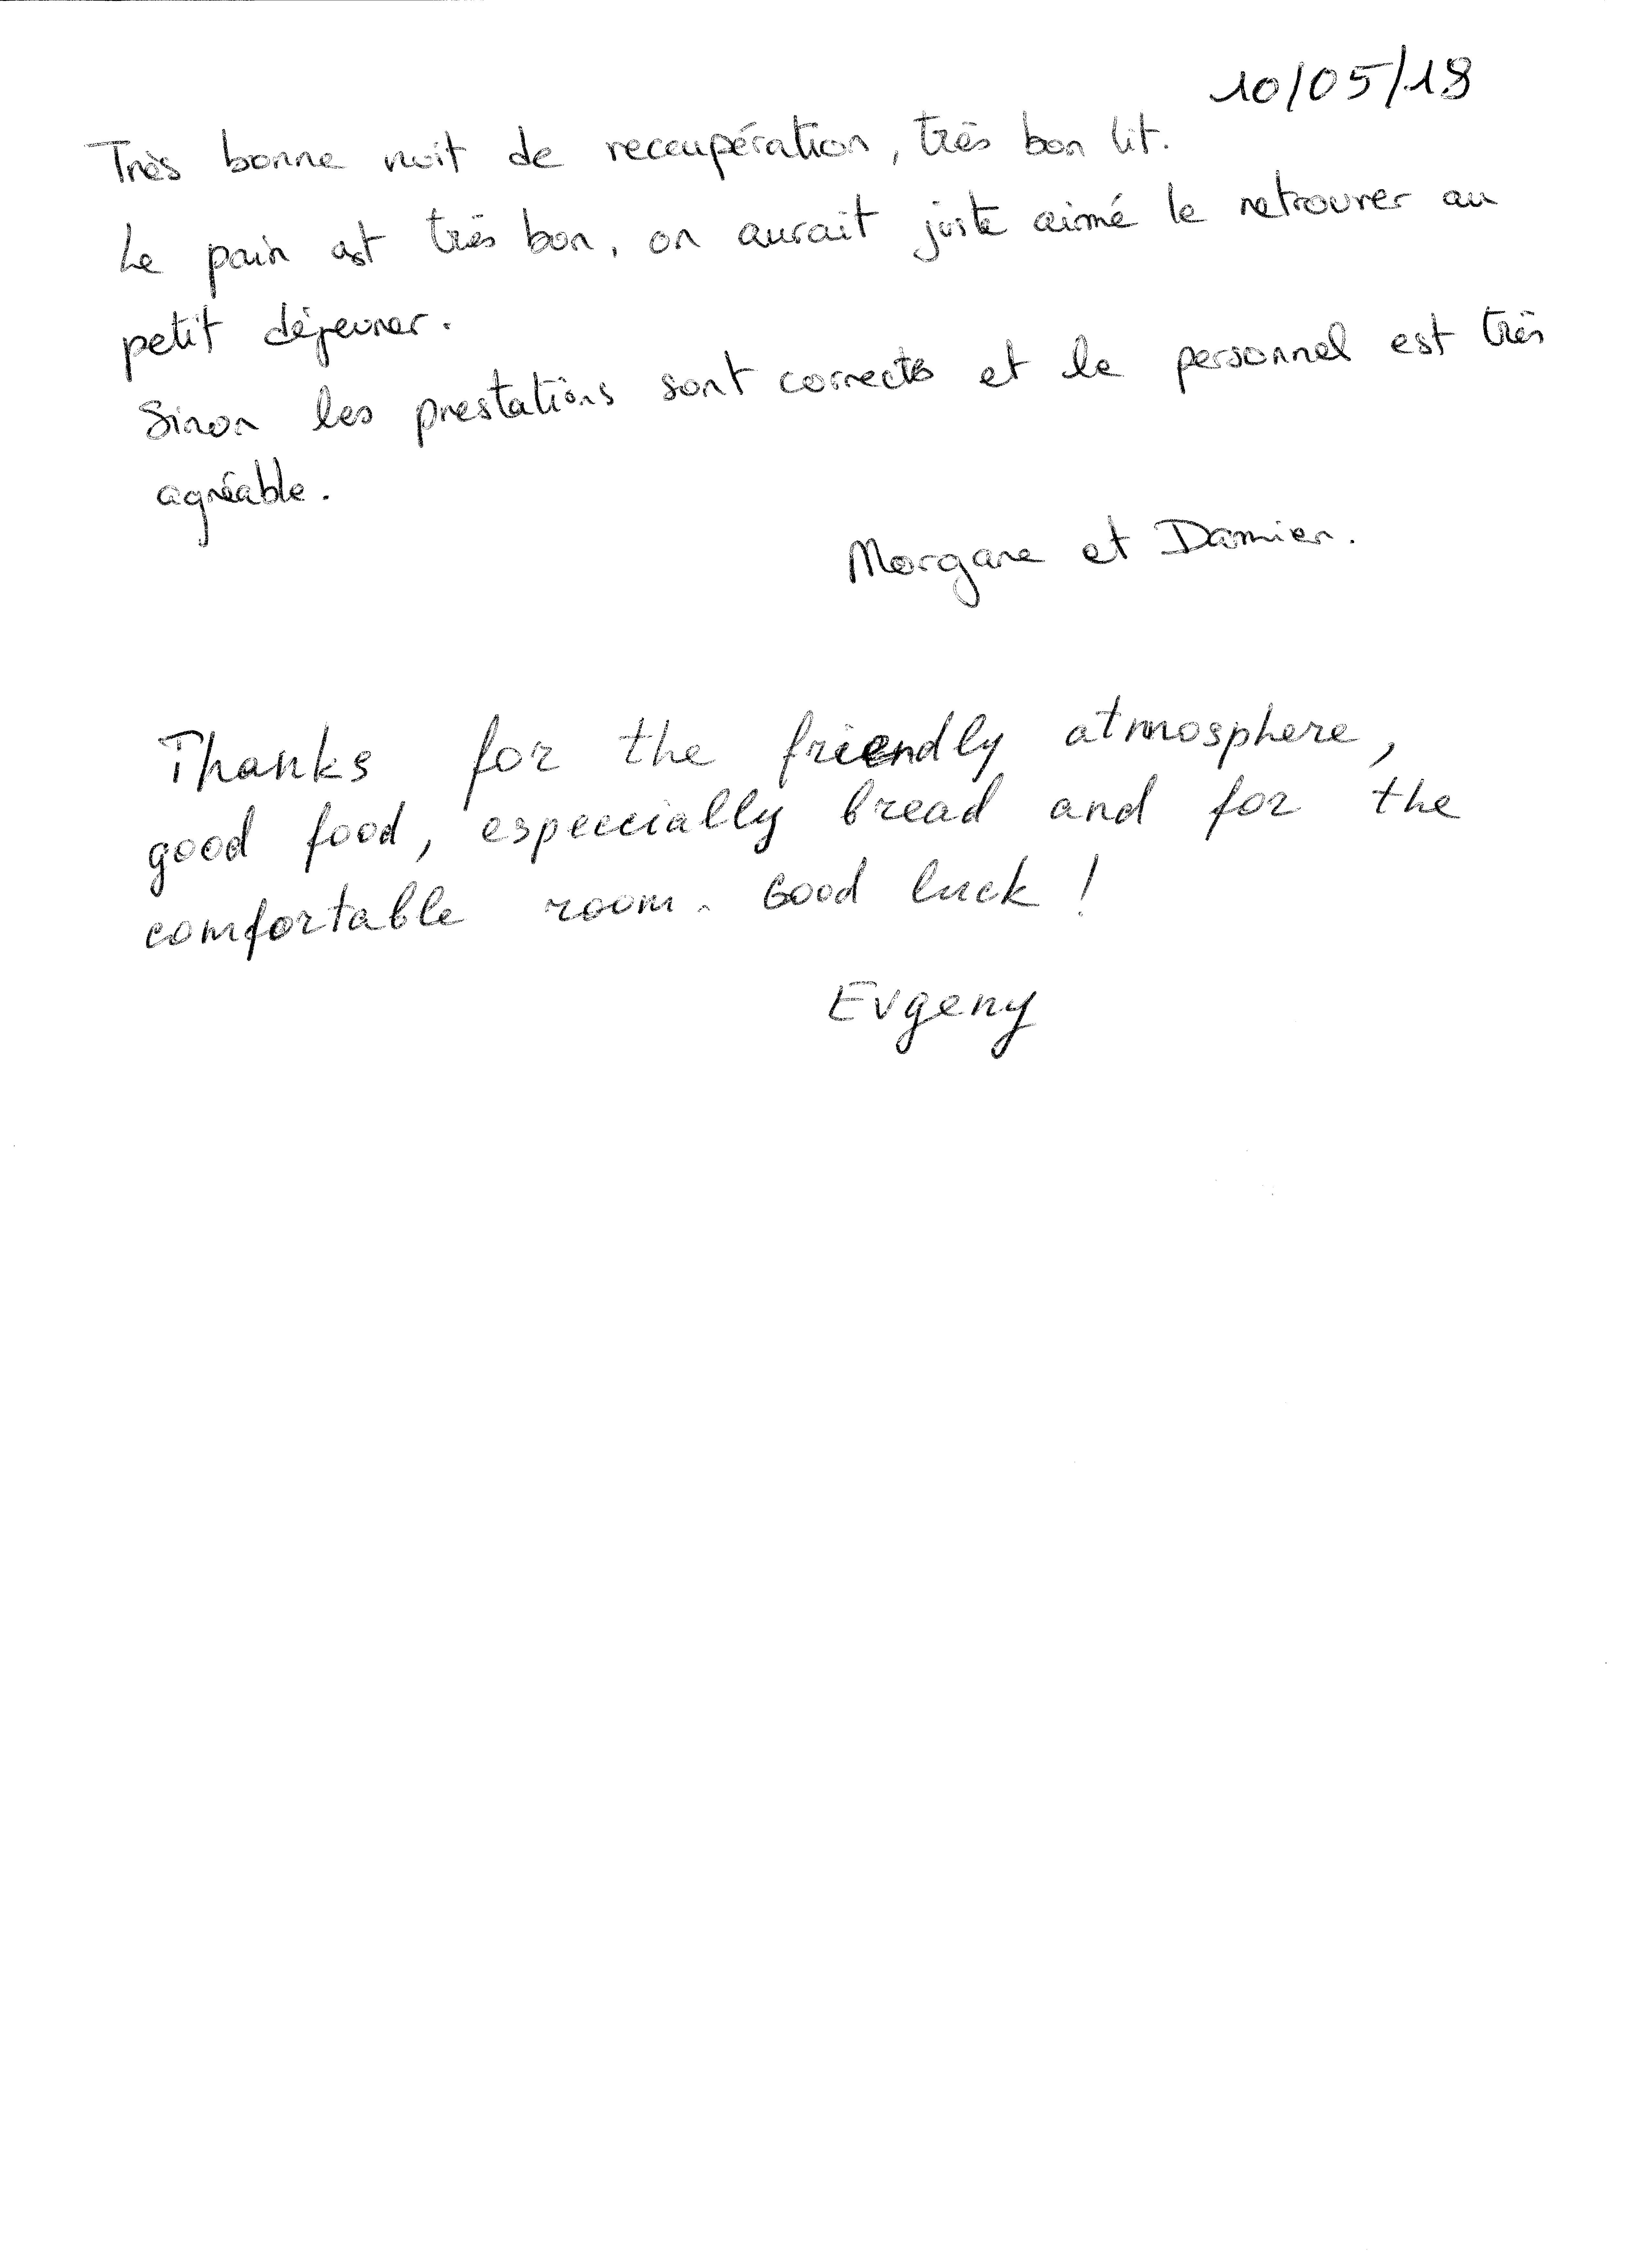 10/05/18
Très bonne nuit de recoupération, très bon lit.
Le pain est très bon, on aurait juste aimé le retrouver au
petit déjeuner.
Sinon les prestations sont correctes et le personnel est très
agréable.
Morgane et Damien.
Thanks for the friendly atmosphere,
good food, especcially bread and for the
comfortable room. Good luck !
Evgeny